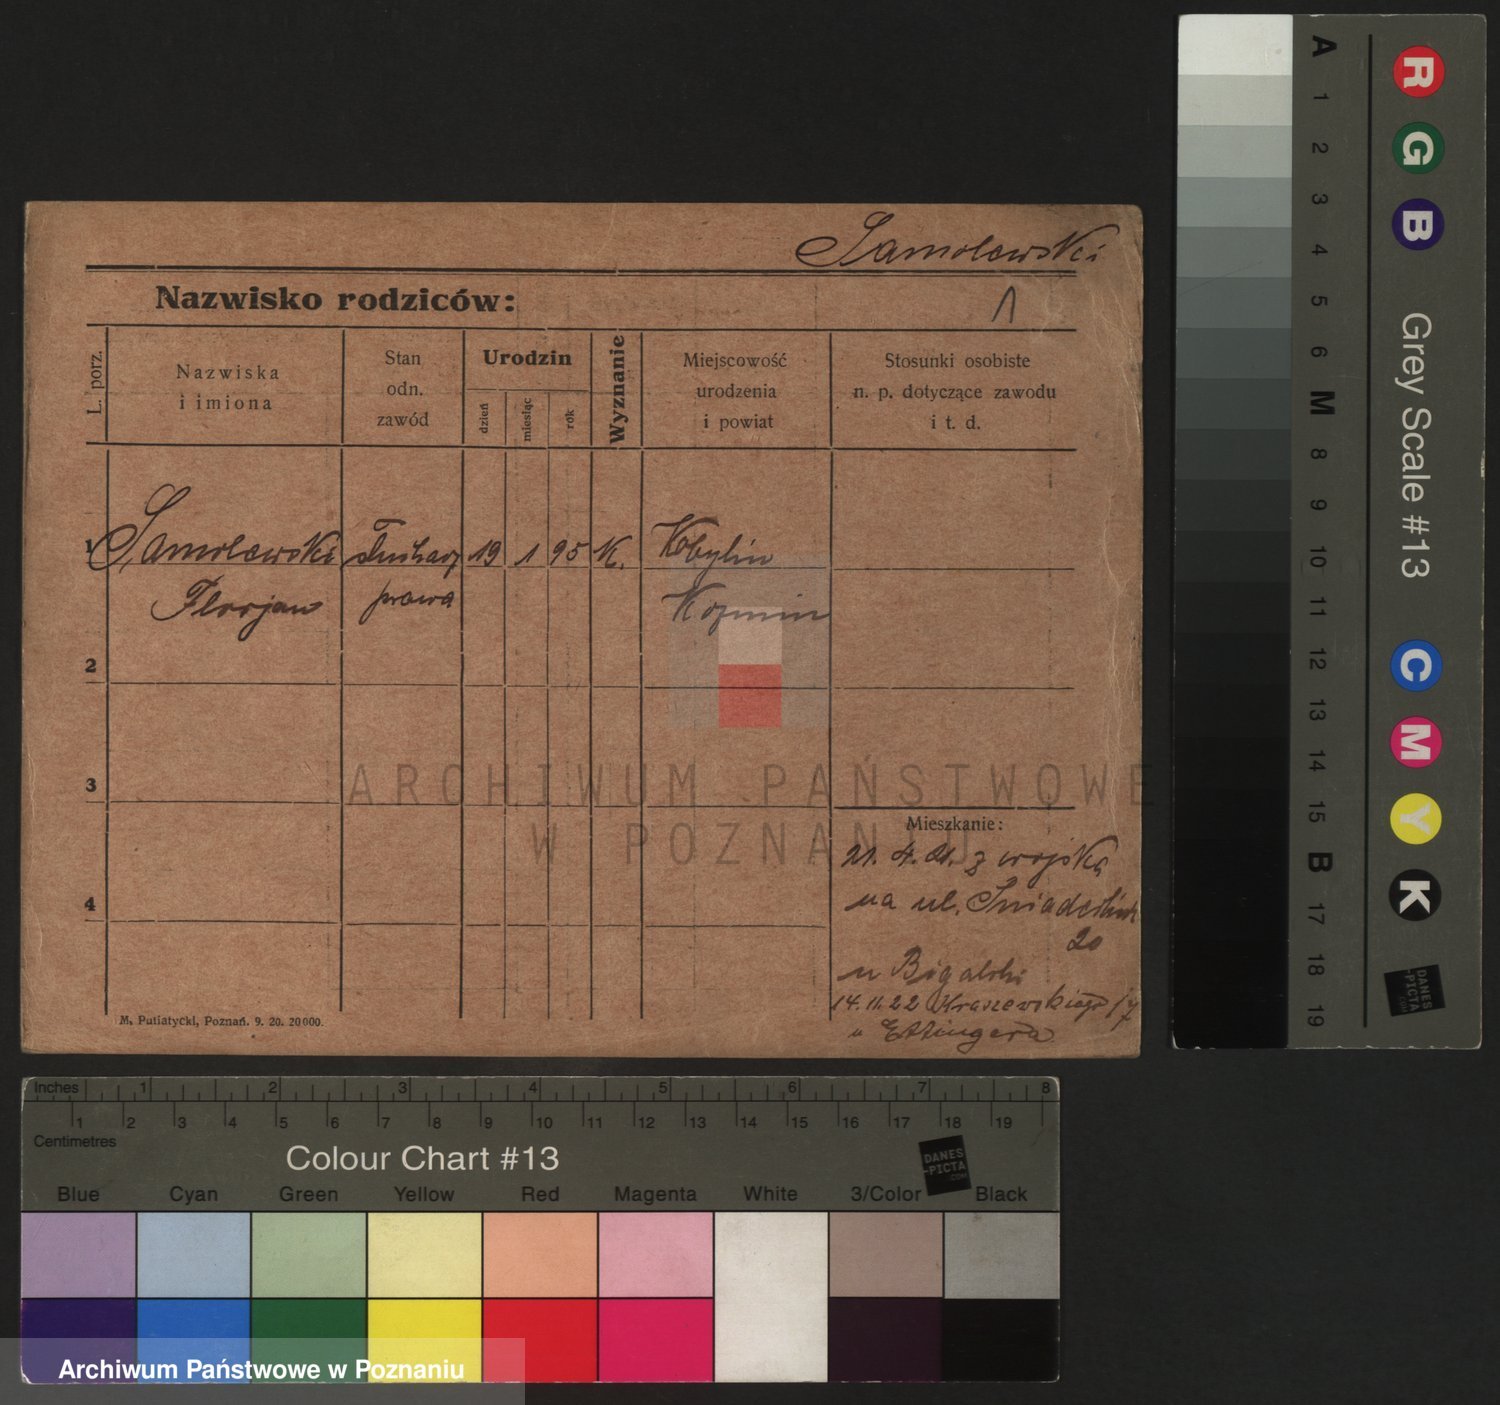 Samolewski
Nazwisko rodziców:
1
L. porz.
Nazwiska
i imiona
Stan
odn.
zawód
Urodzin
dzień
miesiąc
rok
Wyznanie
Miejscowość
urodzenia
i powiat
Stosunki osobiste
n. p. dotyczące zawodu
i t. d.
1 Samolewski 19 1 95 K. Kobylin
Florjan prawa Kozmin
2
3
4
Mieszkanie:
21. 4. 21. z wojska
na ul. Śniadeckich
20
u Bigalski
14.11.22 Kraszewskiego
u Ettingera
M. Putiatycki, Poznań. 9. 20. 20000.
ARCHIWUM PAŃSTWOWE
W POZNANIU
A 1 2 3 4 5 6 M 8 9 10 11 12 13 14 15 B 17 18 19
R G B
Grey Scale #13
C M Y K
DANES
-PICTA
.COM
Inches 1 2 3 4 5 6 7 8
1 2 3 4 5 6 7 8 9 10 11 12 13 14 15 16 17 18 19
Centimetres
Colour Chart #13
DANES
-PICTA
.COM
Blue Cyan Green Yellow Red Magenta White 3/Color Black
Archiwum Państwowe w Poznaniu